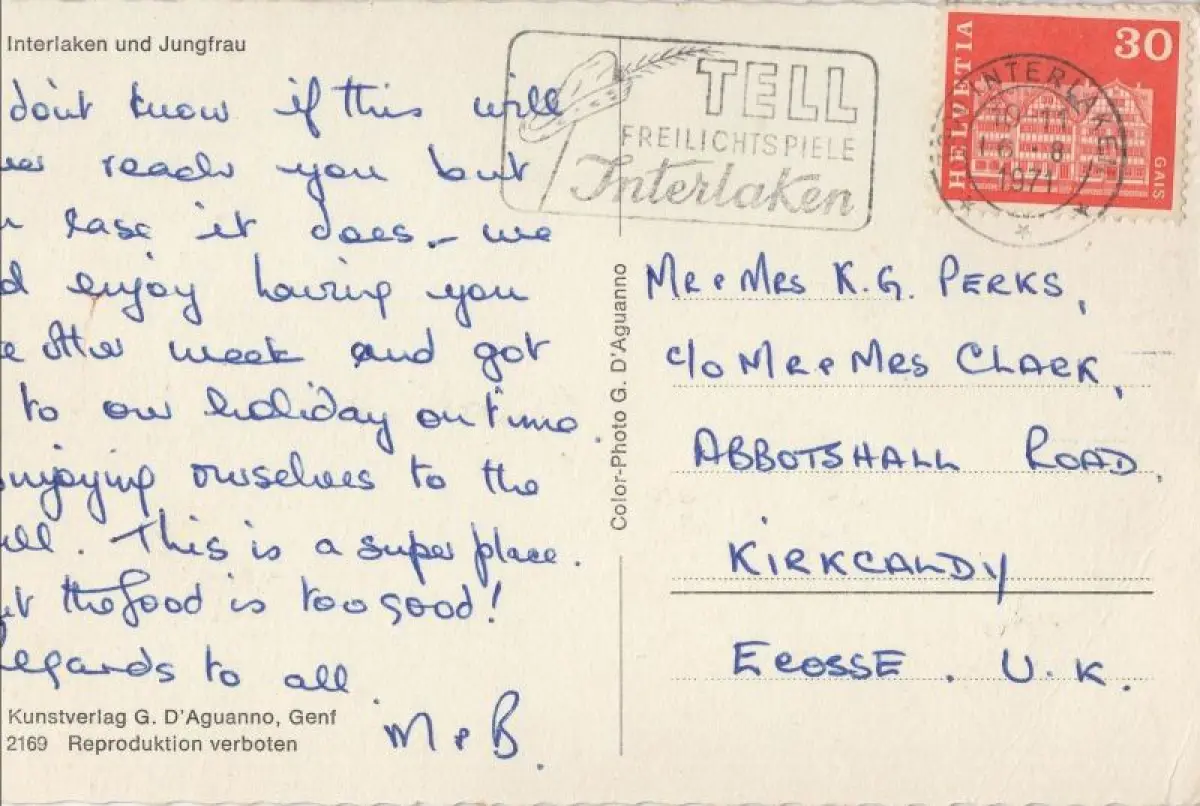 Interlaken und Jungfrau
don't know if this will
reach you but
case it does - we
enjoy having you
other week and got
to our holiday on time.
enjoying ourselves to the
full. This is a super place.
but the food is too good!
Regards to all.
M & B.
Kunstverlag G. D'Aguanno, Genf
2169 Reproduktion verboten
Color-Photo G. D'Aguanno
TELL
FREILICHTSPIELE
Interlaken
HELVETIA
30
GAIS
INTERLAKEN
10-11
8
1971
Mr & Mrs K.G. PERKS,
c/o Mr & Mrs CLARK,
ABBOTSHALL ROAD,
KIRKCALDY
ECOSSE. U.K.